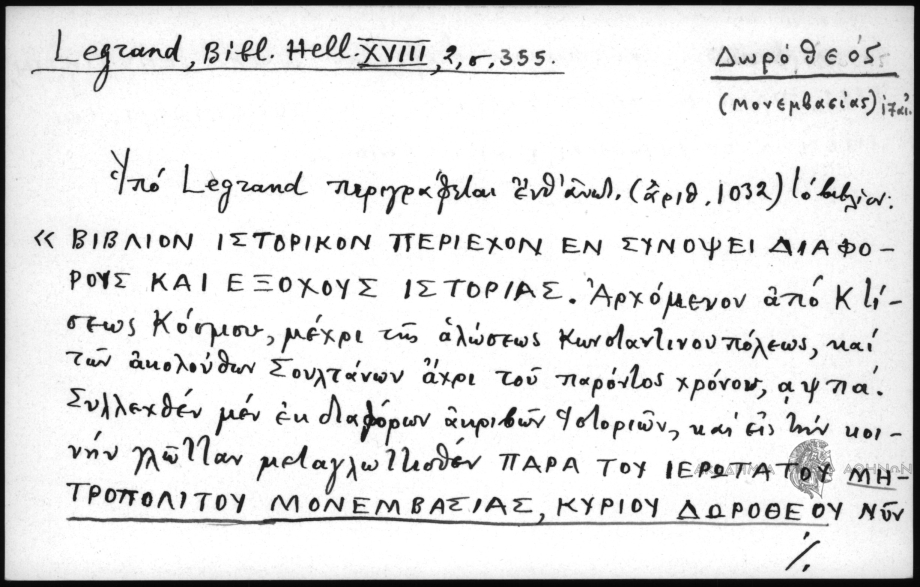 Legrand, Bibl. Hell. XVIII, 2, σ, 355.
Δωρόθεος
(Μονεμβασίας)
Ὑπό Legrand περιγράφεται ἔνθ' ἀνωτ. (ἀριθ. 1032) τό βιβλίον:
« ΒΙΒΛΙΟΝ ΙΣΤΟΡΙΚΟΝ ΠΕΡΙΕΧΟΝ ΕΝ ΣΥΝΟΨΕΙ ΔΙΑΦΟ-
ΡΟΥΣ ΚΑΙ ΕΞΟΧΟΥΣ ΙΣΤΟΡΙΑΣ. Ἀρχόμενον ἀπό Κτί-
σεως Κόσμου, μέχρι τῆς ἁλώσεως Κωνσταντινουπόλεως, καί
τῶν ἀκολούθων Σουλτάνων ἄχρι τοῦ παρόντος χρόνου, αψπα΄.
Συλλεχθέν μέν ἐκ διαφόρων ἀκριβῶν Ἱστοριῶν, καί εἰς τήν κοι-
νήν γλῶτταν μεταγλωττισθέν ΠΑΡΑ ΤΟΥ ΙΕΡΩΤΑΤΟΥ ΜΗ-
ΤΡΟΠΟΛΙΤΟΥ ΜΟΝΕΜΒΑΣΙΑΣ, ΚΥΡΙΟΥ ΔΩΡΟΘΕΟΥ Νῦν
·/.